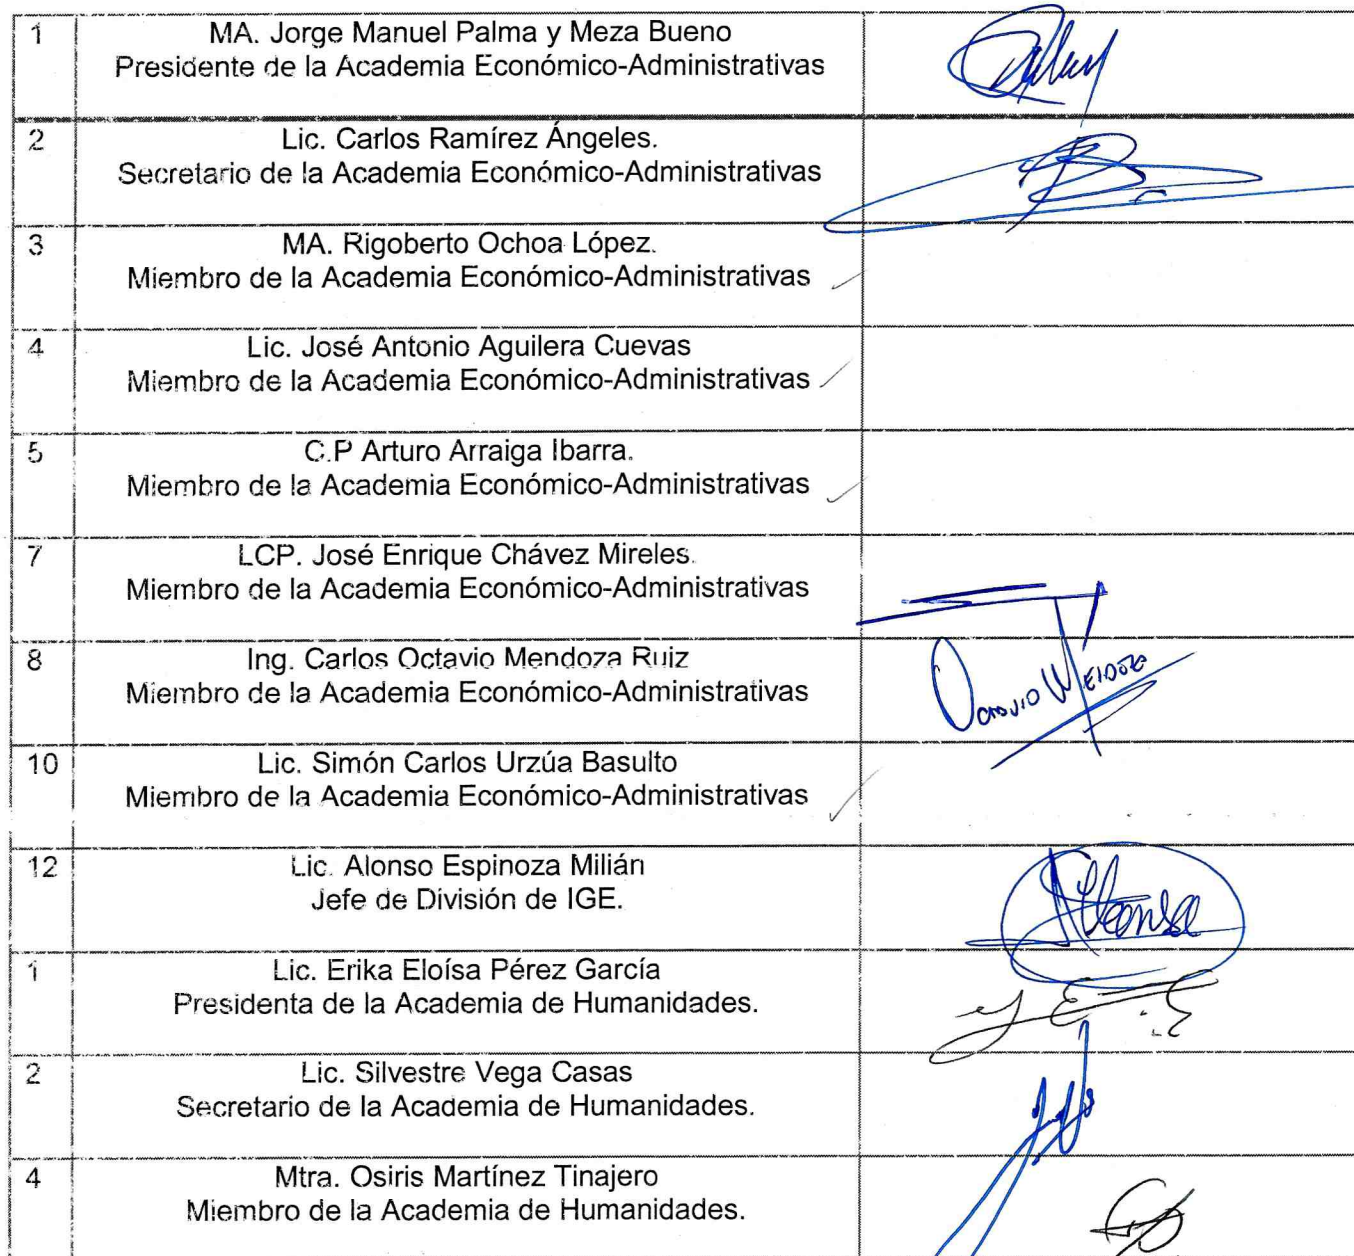 1 MA. Jorge Manuel Palma y Meza Bueno
Presidente de la Academia Económico-Administrativas
2 Lic. Carlos Ramírez Ángeles.
Secretario de la Academia Económico-Administrativas
3 MA. Rigoberto Ochoa López.
Miembro de la Academia Económico-Administrativas
4 Lic. José Antonio Aguilera Cuevas
Miembro de la Academia Económico-Administrativas
5 C.P Arturo Arraiga Ibarra.
Miembro de la Academia Económico-Administrativas
7 LCP. José Enrique Chávez Mireles.
Miembro de la Academia Económico-Administrativas
8 Ing. Carlos Octavio Mendoza Ruiz
Miembro de la Academia Económico-Administrativas
Octavio Mendoza
10 Lic. Simón Carlos Urzúa Basulto
Miembro de la Academia Económico-Administrativas
12 Lic. Alonso Espinoza Milián
Jefe de División de IGE.
Alonso
1 Lic. Erika Eloísa Pérez García
Presidenta de la Academia de Humanidades.
2 Lic. Silvestre Vega Casas
Secretario de la Academia de Humanidades.
4 Mtra. Osiris Martínez Tinajero
Miembro de la Academia de Humanidades.